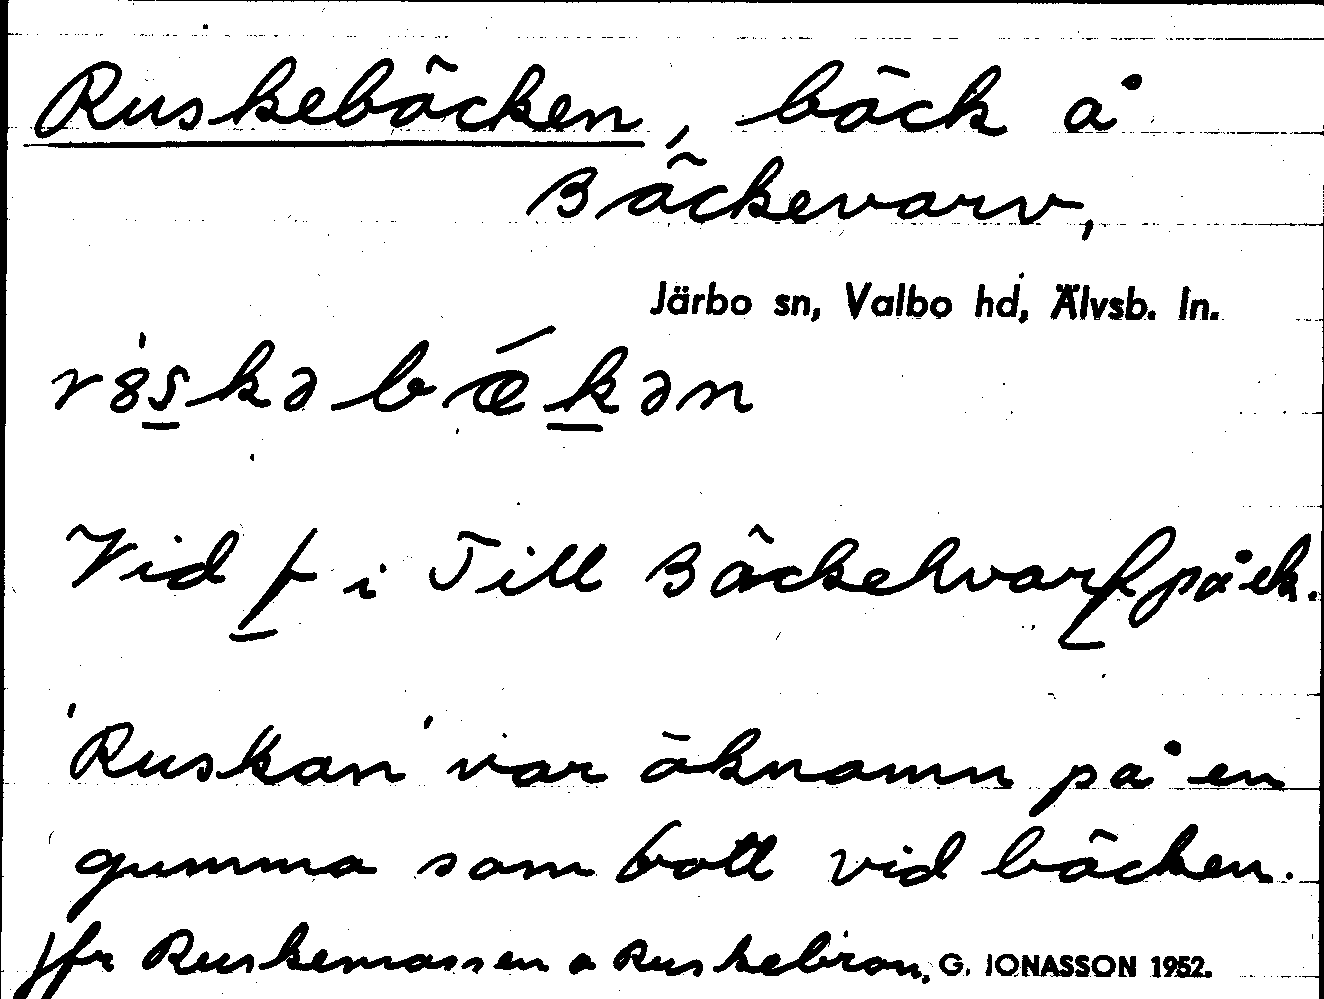 Ruskebäcken, bäck å
Bäckevarv,
Järbo sn, Valbo hd, Älvsb. ln.
Vid f i Till Bäckehvarf på ek.
'Ruskan' var öknamn på en
gumma som bott vid bäcken.
Jfr Ruskemossen o Ruskebron. G. JONASSON 1952.